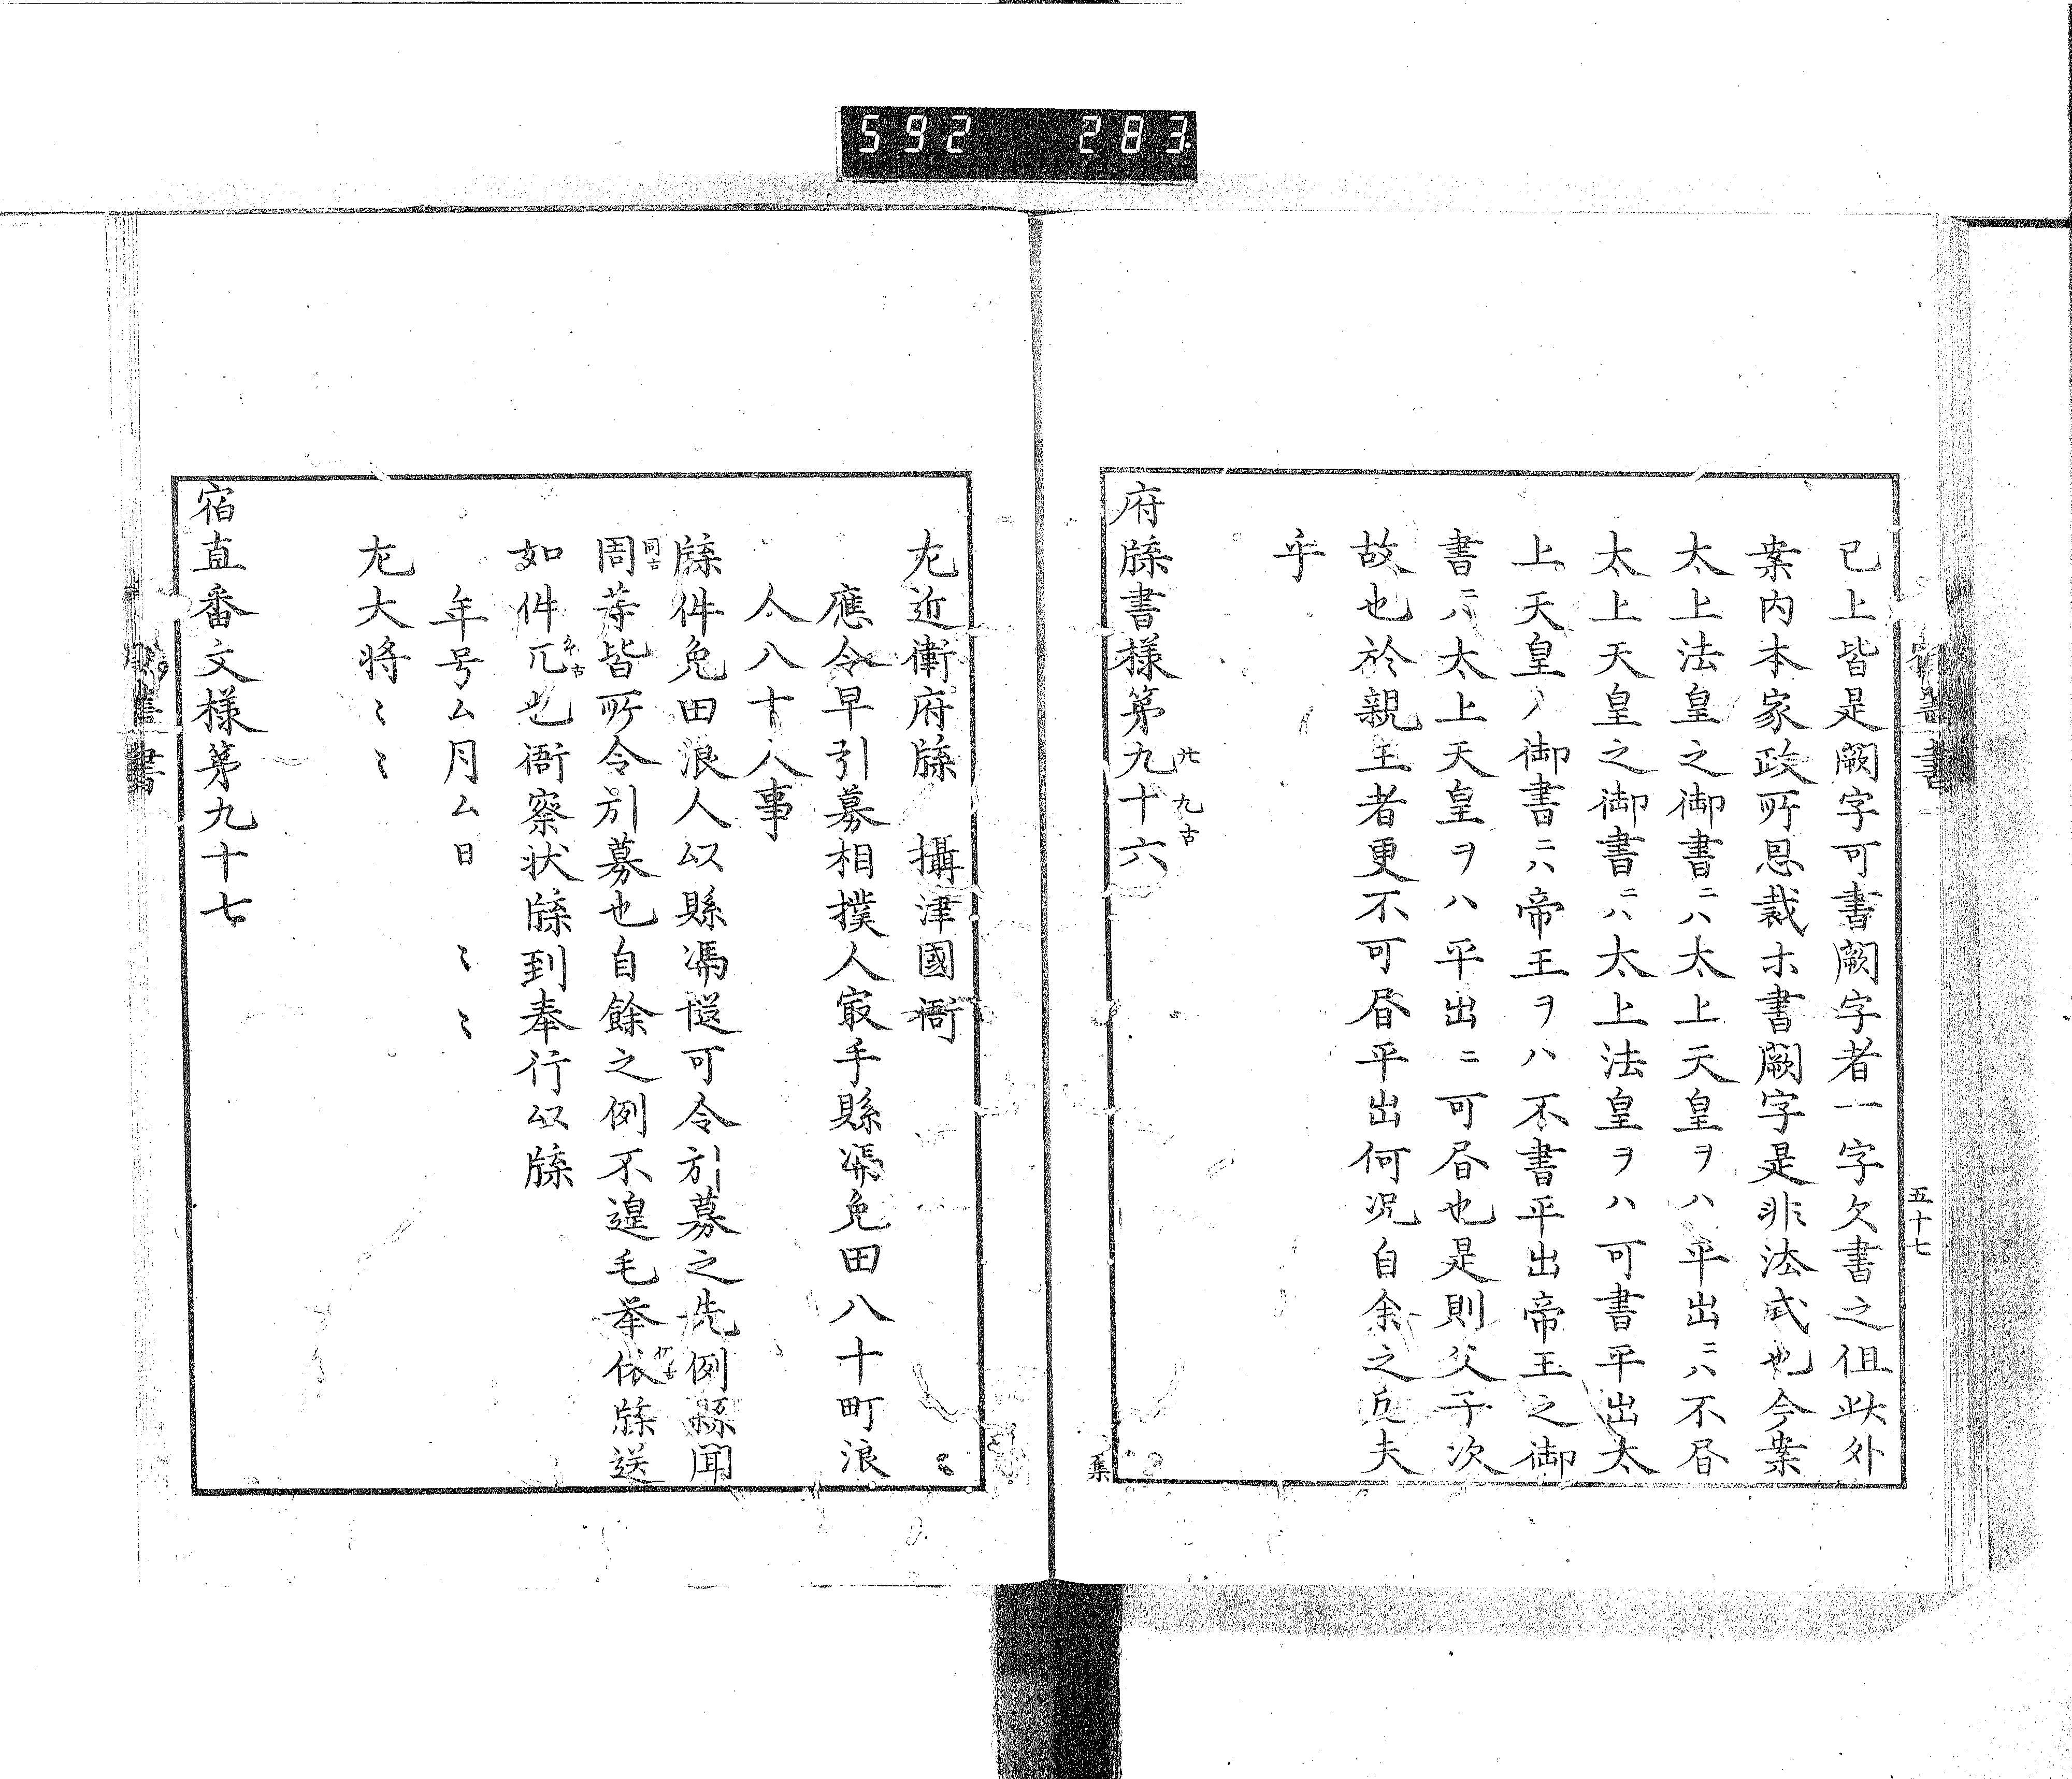 592 283
五十七
已上皆是闕字可書闕字者一字欠書之但此外
案内本家政所恩裁ホ書闕字是非法式也今案
太上法皇之御書ニハ太上天皇ヲハ平出ニハ不昏
太上天皇之御書ニハ太上法皇ヲハ可書平出太
上天皇ノ御書ニハ帝王ヲハ不書平出帝王之御
書ニハ太上天皇ヲハ平出ニ可昏也是則父子次
故也於親王者更不可昏平出何況自余之凡夫
乎
府牒書様第九十六
廿九古
集
左近衛府牒 攝津國衙
應令早引募相撲人冣手縣馮免田八十町浪
人八十人事
牒件免田浪人以縣馮従可令引募之先例縣聞
周等皆所令引募也自餘之例不遑毛挙依牒送
同古
如件凡也衙察状牒到奉行以牒
年号ム月ム日 ミミ
左大将ミミ
宿直番文様第九十七